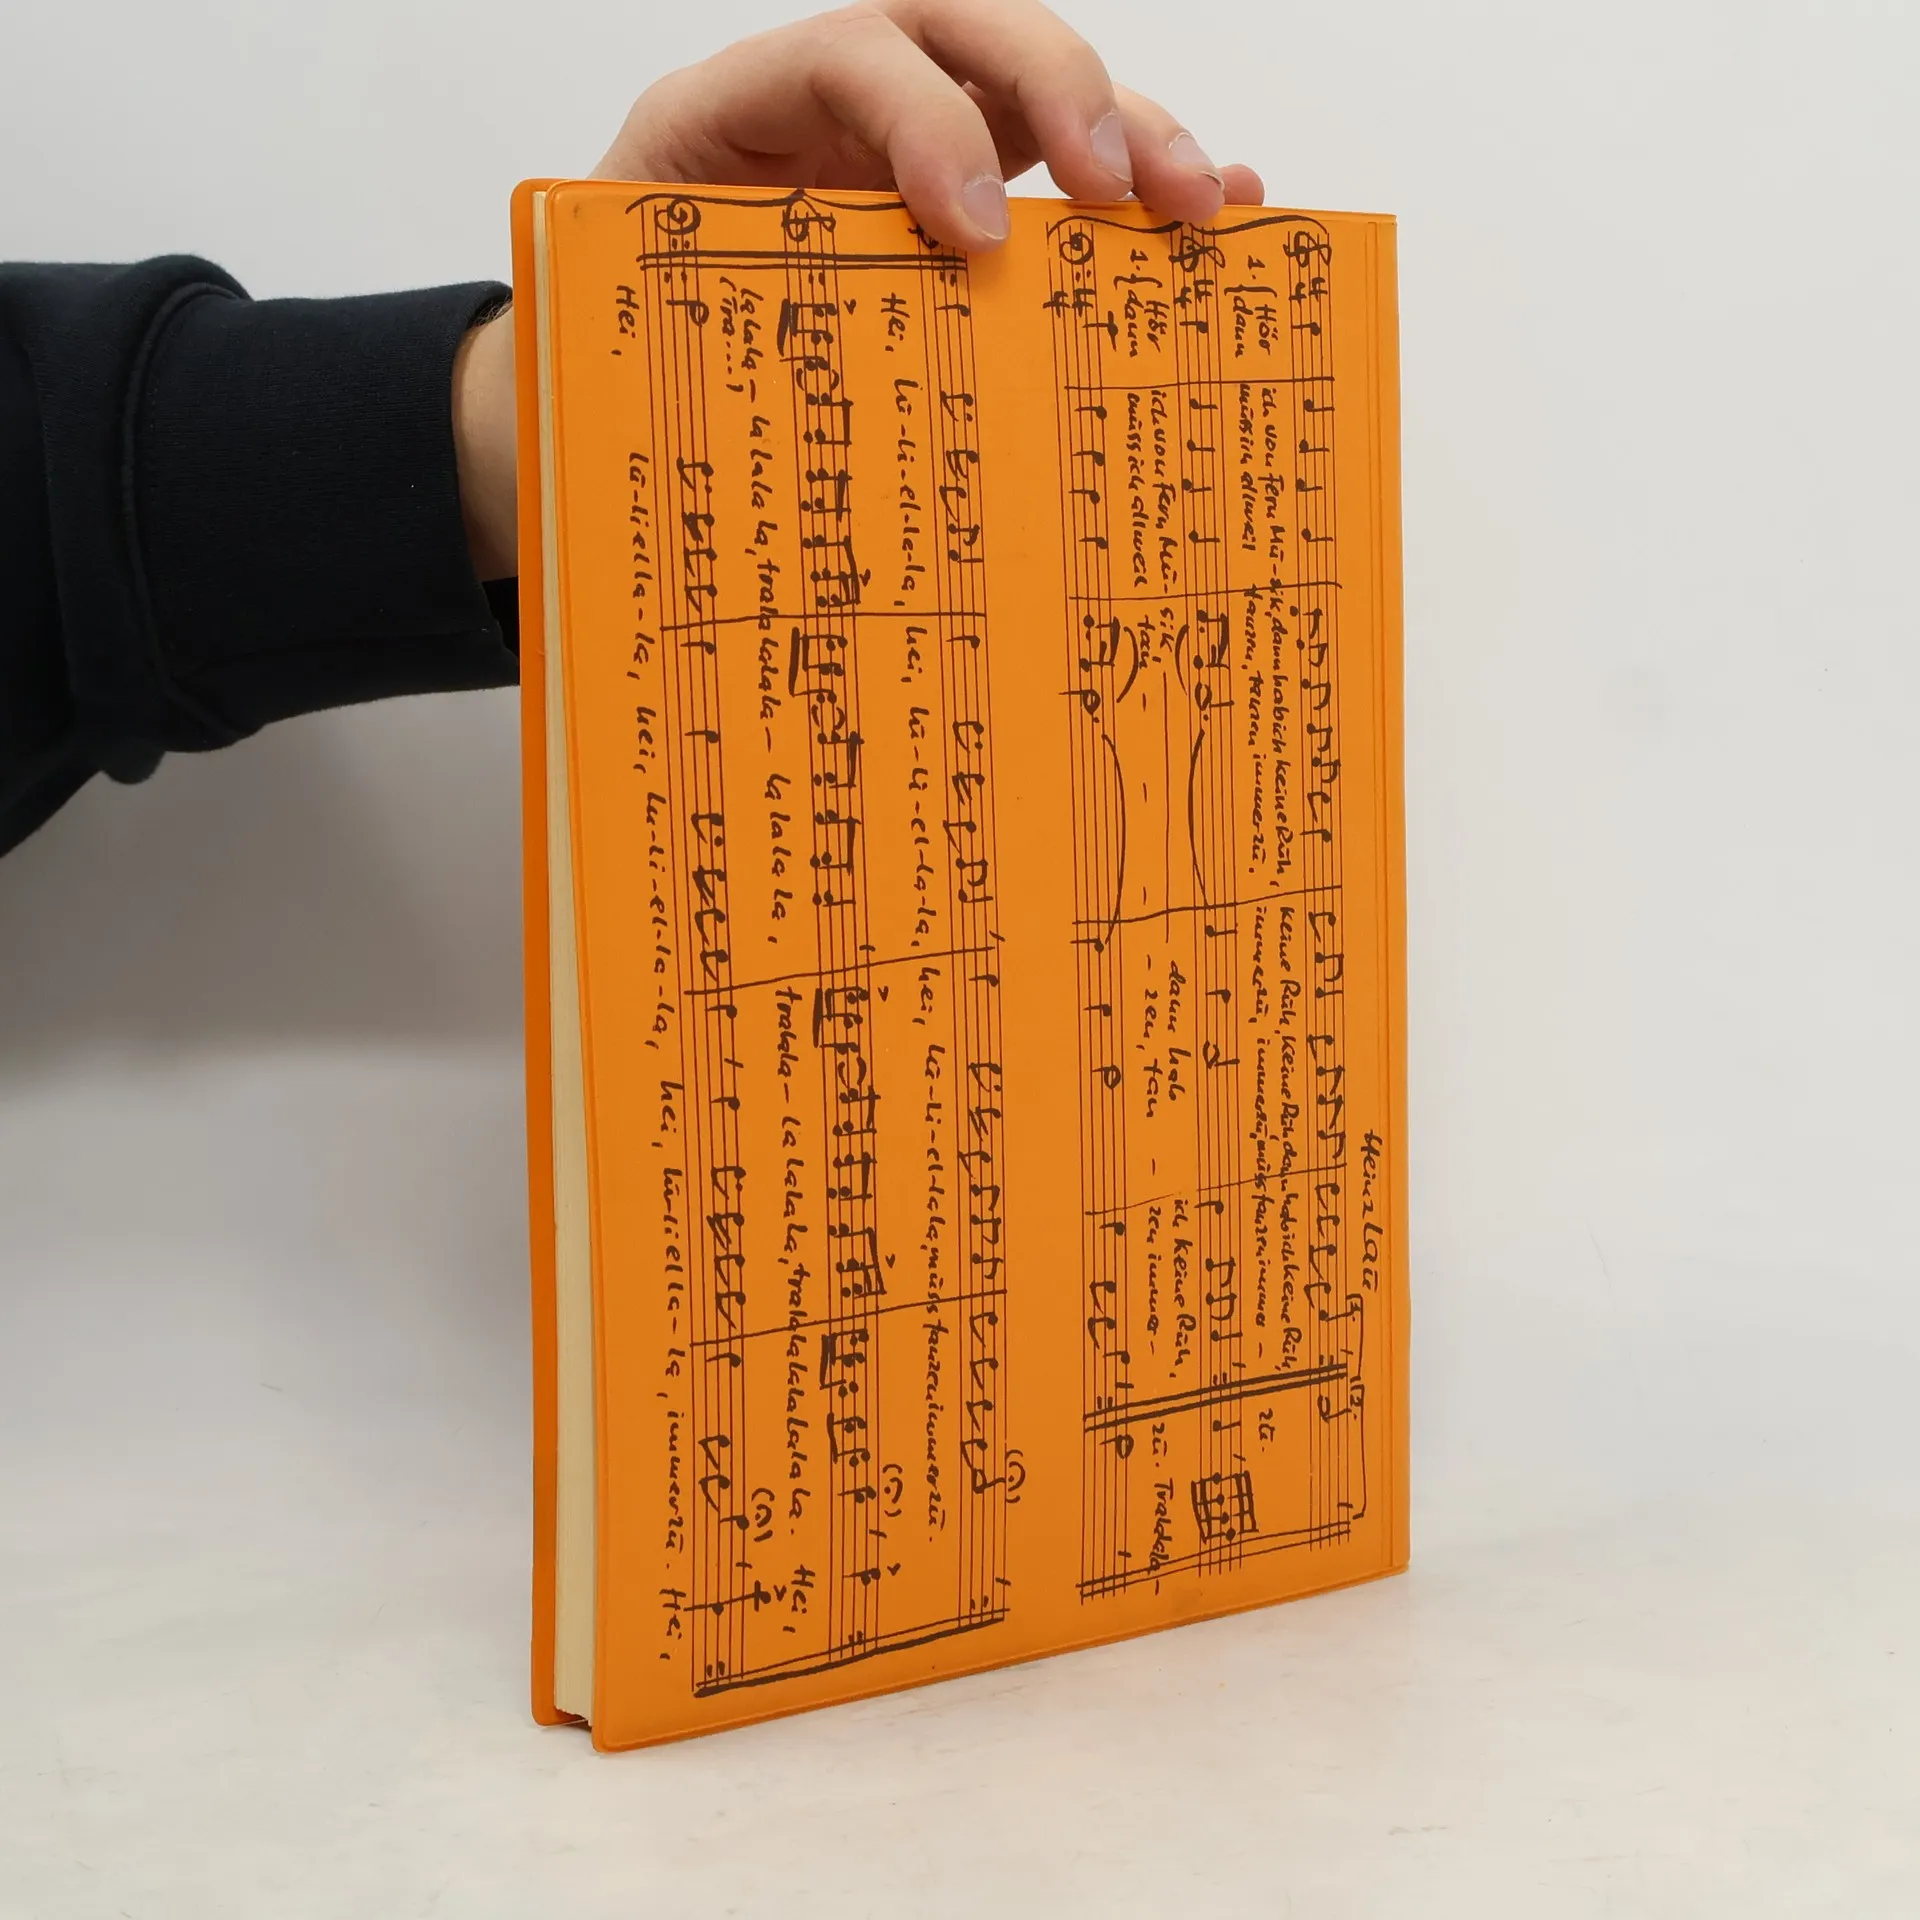 Heinz Lau
1. { Hör ich von Fern Mu-sik, dann hab ich keine Ruh, keine Ruh, keine Ruh, dann hab ich keine Ruh,
dann muss ich allweil tanzen, tanzen immerzu, immerzu, immerzu, muss tanzen immer - zu.
1. { Hör ich von Fern Mu- sik, dann hab ich keine Ruh,
dann muss ich allweil tan - - - zen, tan - zen immer - zu. Tralalala -
Hei, lu-li-el-la-la, hei, lu-li-el-la-la, hei, lu-li-el-la-la, muss tanzen immerzu.
lalala - la lalala la, tralalalala - la la la la, tralala - la lalala la, tralalalalalalala la. Hei,
(Tra...)
Hei, lu-liella-la, hei, lu-li-el-la-la, hei, lu-liella-la, immerzu. Hei,